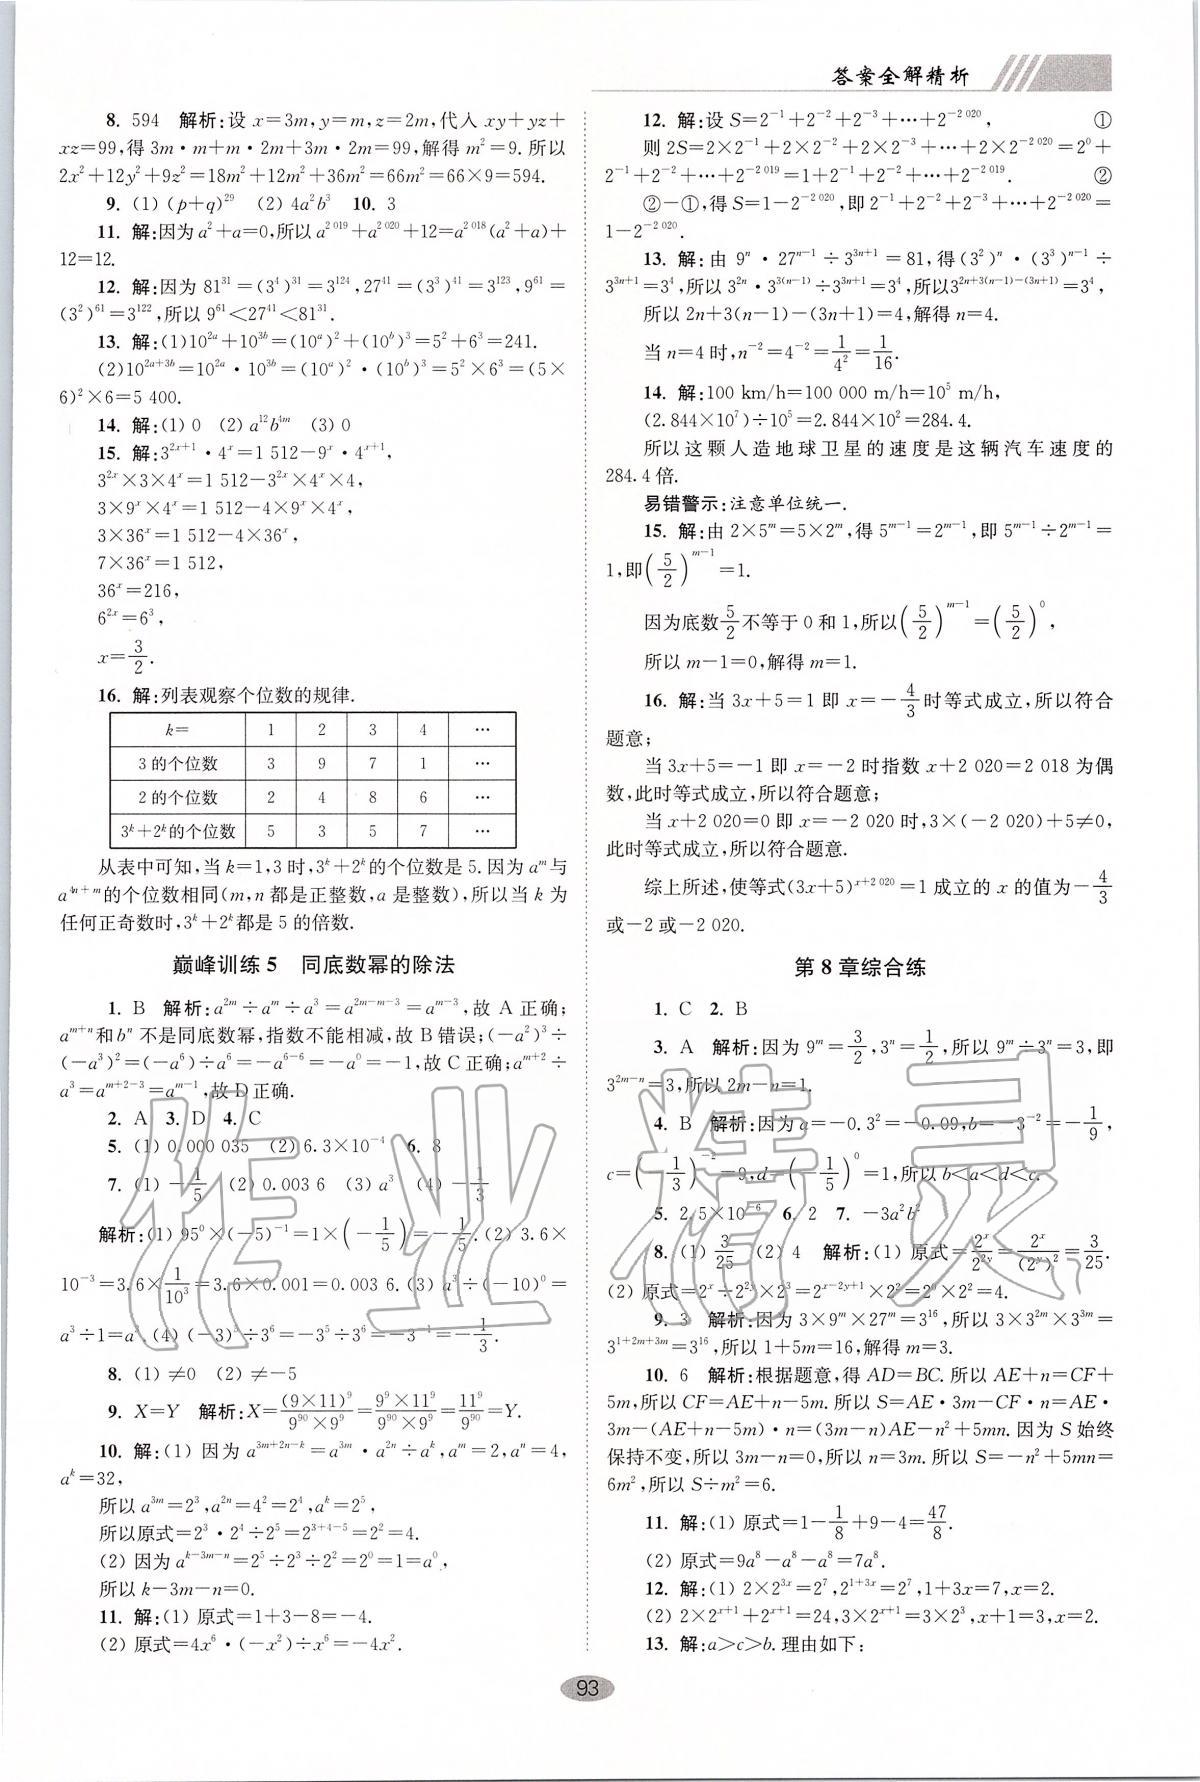 答案全解精析
8. 594 解析:设 x=3m,y=m,z=2m,代入 xy+yz+
xz=99,得 3m·m+m·2m+3m·2m=99,解得 m²=9. 所以
2x²+12y²+9z²=18m²+12m²+36m²=66m²=66×9=594.
9. (1) (p+q)²⁹ (2) 4a²b³ 10. 3
11. 解:因为 a²+a=0,所以 a²⁰¹⁹+a²⁰²⁰+12=a²⁰¹⁸(a²+a)+
12=12.
12. 解:因为 81³¹=(3⁴)³¹=3¹²⁴,27⁴¹=(3³)⁴¹=3¹²³,9⁶¹=
(3²)⁶¹=3¹²²,所以 9⁶¹<27⁴¹<81³¹.
13. 解:(1)10^{2a}+10^{3b}=(10^a)²+(10^b)³=5²+6³=241.
(2)10^{2a+3b}=10^{2a}·10^{3b}=(10^a)²·(10^b)³=5²×6³=(5×
6)²×6=5 400.
14. 解:(1) 0 (2) a¹²b^{4m} (3) 0
15. 解:3^{2x+1}·4^x=1 512-9^x·4^{x+1},
3^{2x}×3×4^x=1 512-3^{2x}×4^x×4,
3×9^x×4^x=1 512-4×9^x×4^x,
3×36^x=1 512-4×36^x,
7×36^x=1 512,
36^x=216,
6^{2x}=6³,
x=3/2.
16. 解:列表观察个位数的规律.
k= 1 2 3 4 …
3 的个位数 3 9 7 1 …
2 的个位数 2 4 8 6 …
3^k+2^k的个位数 5 3 5 7 …
从表中可知,当 k=1,3 时,3^k+2^k的个位数是 5. 因为 a^m与
a^{4n+m}的个位数相同(m,n 都是正整数,a 是整数),所以当 k 为
任何正奇数时,3^k+2^k都是 5 的倍数.
巅峰训练 5 同底数幂的除法
1. B 解析:a^{2m}÷a^m÷a³=a^{2m-m-3}=a^{m-3},故 A 正确;
a^{m+n}和b^n 不是同底数幂,指数不能相减,故 B 错误;(-a²)³÷
(-a³)²=(-a⁶)÷a⁶=-a^{6-6}=-a⁰=-1,故 C 正确;a^{m+2}÷
a³=a^{m+2-3}=a^{m-1},故 D 正确.
2. A 3. D 4. C
5. (1) 0.000 035 (2) 6.3×10⁻⁴ 6. 8
7. (1) -1/5 (2) 0.003 6 (3) a³ (4) -1/3
解析:(1) 95⁰×(-5)⁻¹=1×(-1/5)=-1/5. (2) 3.6×
10⁻³=3.6×1/10³=3.6×0.001=0.003 6. (3) a³÷(-10)⁰=
a³÷1=a³. (4) (-3)⁵÷3⁶=-3⁵÷3⁶=-3⁻¹=-1/3.
8. (1) ≠0 (2) ≠-5
9. X=Y 解析:X=(9×11)⁹/(9⁹⁰×9⁹)=(9⁹×11⁹)/(9⁹⁰×9⁹)=11⁹/9⁹⁰=Y.
10. 解:(1) 因为 a^{3m+2n-k}=a^{3m}·a^{2n}÷a^k,a^m=2,a^n=4,
a^k=32,
所以 a^{3m}=2³,a^{2n}=4²=2⁴,a^k=2⁵,
所以原式=2³·2⁴÷2⁵=2^{3+4-5}=2²=4.
(2) 因为 a^{k-3m-n}=2⁵÷2³÷2²=2⁰=1=a⁰,
所以 k-3m-n=0.
11. 解:(1) 原式=1+3-8=-4.
(2) 原式=4x⁶·(-x²)÷x⁶=-4x².
12. 解:设 S=2⁻¹+2⁻²+2⁻³+…+2⁻²⁰²⁰, ①
则 2S=2×2⁻¹+2×2⁻²+2×2⁻³+…+2×2⁻²⁰²⁰=2⁰+
2⁻¹+2⁻²+…+2⁻²⁰¹⁹=1+2⁻¹+2⁻²+…+2⁻²⁰¹⁹. ②
②-①,得 S=1-2⁻²⁰²⁰,即 2⁻¹+2⁻²+2⁻³+…+2⁻²⁰²⁰=
1-2⁻²⁰²⁰.
13. 解:由 9^n·27^{n-1}÷3^{3n+1}=81,得(3²)^n·(3³)^{n-1}÷
3^{3n+1}=3⁴,所以 3^{2n}·3^{3(n-1)}÷3^{3n+1}=3⁴,所以3^{2n+3(n-1)-(3n+1)}=3⁴,
所以 2n+3(n-1)-(3n+1)=4,解得 n=4.
当 n=4 时,n⁻²=4⁻²=1/4²=1/16.
14. 解:100 km/h=100 000 m/h=10⁵ m/h,
(2.844×10⁷)÷10⁵=2.844×10²=284.4.
所以这颗人造地球卫星的速度是这辆汽车速度的
284.4 倍.
易错警示:注意单位统一.
15. 解:由 2×5^m=5×2^m,得 5^{m-1}=2^{m-1},即 5^{m-1}÷2^{m-1}=
1,即(5/2)^{m-1}=1.
因为底数5/2不等于 0 和 1,所以(5/2)^{m-1}=(5/2)⁰,
所以 m-1=0,解得 m=1.
16. 解:当 3x+5=1 即 x=-4/3时等式成立,所以符合
题意;
当 3x+5=-1 即 x=-2 时指数 x+2 020=2 018 为偶
数,此时等式成立,所以符合题意;
当 x+2 020=0 即 x=-2 020 时,3×(-2 020)+5≠0,
此时等式成立,所以符合题意.
综上所述,使等式(3x+5)^{x+2 020}=1 成立的 x 的值为-4/3
或-2或-2 020.
第 8 章综合练
1. C 2. B
3. A 解析:因为 9^m=3/2,3^n=1/2,所以 9^m÷3^n=3,即
3^{2m-n}=3,所以 2m-n=1.
4. B 解析:因为 a=-0.3²=-0.09,b=-3⁻²=-1/9,
c=(-1/3)⁻²=9,d=(-1/5)⁰=1,所以 b<a<d<c.
5. 2.5×10⁻⁶ 6. 2 7. -3a²b²
8. (1) 3/25 (2) 4 解析:(1) 原式=2^x/2^{2y}=2^x/(2^y)²=3/25.
(2) 原式=2^x÷2^{2y}×2³=2^{x-2y+1}×2²=2⁰×2²=4.
9. 3 解析:因为 3×9^m×27^m=3¹⁶,所以 3×3^{2m}×3^{3m}=
3^{1+2m+3m}=3¹⁶,所以 1+5m=16,解得 m=3.
10. 6 解析:根据题意,得 AD=BC. 所以 AE+n=CF+
5m,所以 CF=AE+n-5m. 所以 S=AE·3m-CF·n=AE·
3m-(AE+n-5m)·n=(3m-n)AE-n²+5mn. 因为 S 始终
保持不变,所以 3m-n=0,所以 n=3m. 所以 S=-n²+5mn=
6m²,所以 S÷m²=6.
11. 解:(1) 原式=1-1/8+9-4=47/8.
(2) 原式=9a⁸-a⁸-a⁸=7a⁸.
12. 解:(1) 2×2^{3x}=2⁷,2^{1+3x}=2⁷,1+3x=7,x=2.
(2) 2×2^{x+1}+2^{x+1}=24,3×2^{x+1}=3×2³,x+1=3,x=2.
13. 解:a>c>b. 理由如下:
93
作业精灵